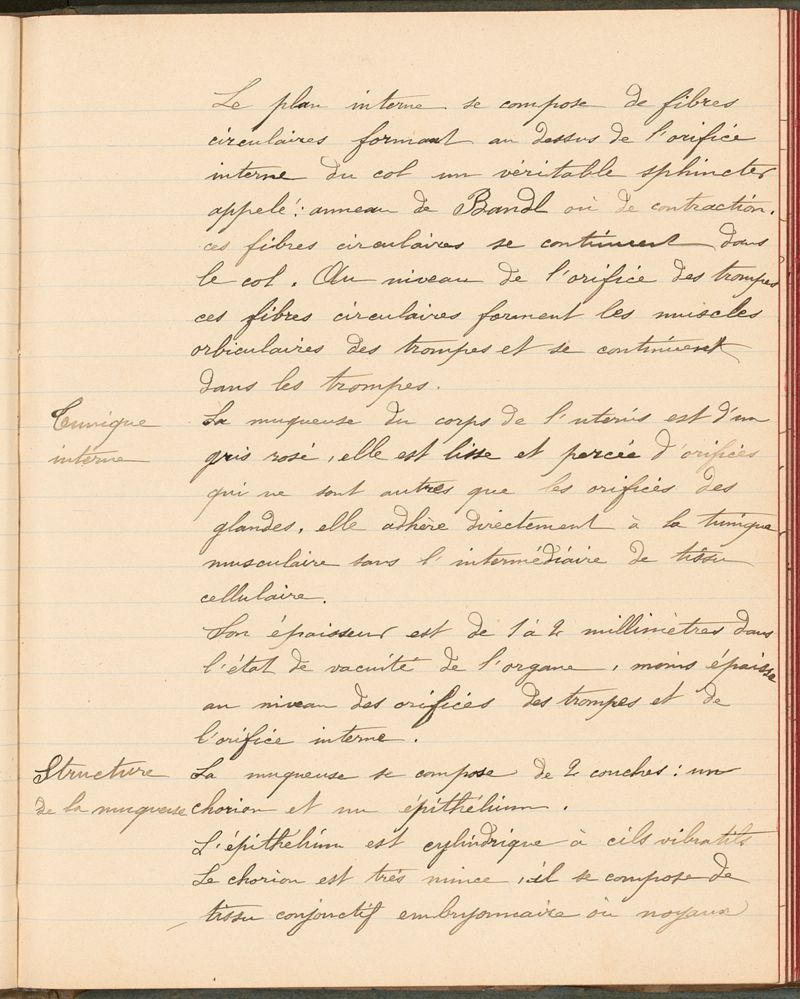 Le plan interne se compose de fibres
circulaires formant au dessus de l'orifice
interne du col un véritable sphincter
appelé : anneau de Bandl où de contraction.
ces fibres circulaires se continuent dans
le col. Au niveau de l'orifice des trompes
ces fibres circulaires forment les muscles
orbiculaires des trompes et se continuent
dans les trompes.
Tunique
interne
La muqueuse du corps de l'utérus est d'un
gris rosé, elle est lisse et percée d'orifices
qui ne sont autres que les orifices des
glandes, elle adhère directement à la tunique
musculaire sans l'intermédiaire de tissu
cellulaire.
Son épaisseur est de 1 à 2 millimètres dans
l'état de vacuité de l'organe, moins épaisse
au niveau des orifices des trompes et de
l'orifice interne.
Structure
de la muqueuse
La muqueuse se compose de 2 couches : un
chorion et un épithélium.
L'épithélium est cylindrique à cils vibratils
Le chorion est très mince, il se compose de
tissu conjonctif embryonnaire où noyaux